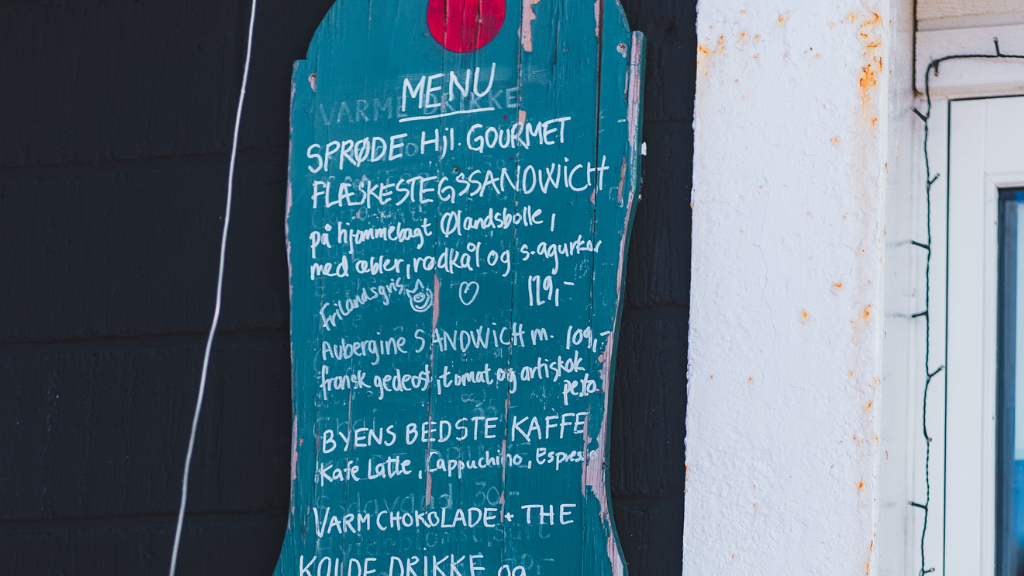 MENU
VARME DRIKKE
SPRØDE Hjl. GOURMET
FLÆSKESTEGSSANDWICH
på hjemmebagt Ølandsbolle,
med æbler, rødkål og s.agurker
Frilandsgris ♡ 129,-
Aubergine SANDWICH m. 109,-
fransk gedeost, tomat og artiskok
pesto
BYENS BEDSTE KAFFE
Kafe Latte, Cappuchino, Espresso
VARM CHOKOLADE + THE
KOLDE DRIKKE og